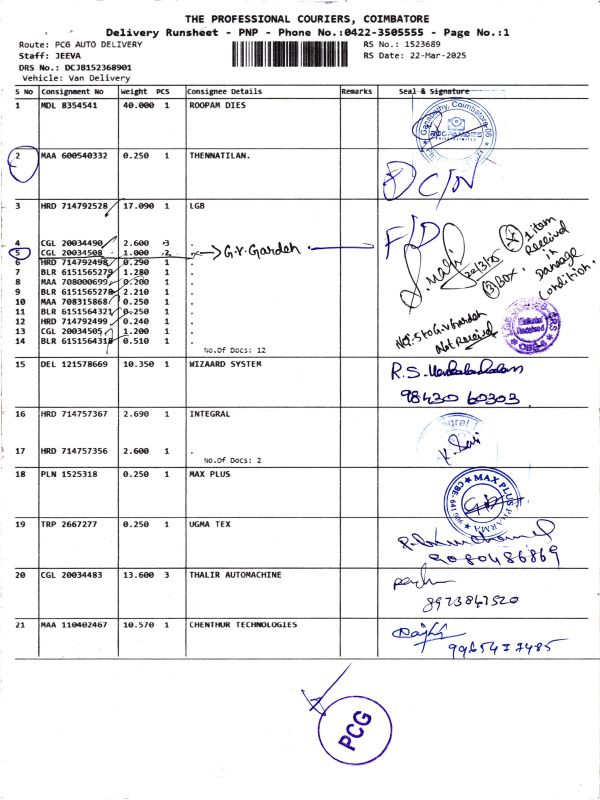 THE PROFESSIONAL COURIERS, COIMBATORE
Delivery Runsheet - PNP - Phone No.:0422-3505555 - Page No.:1
Route: PCG AUTO DELIVERY
RS No.: 1523689
Staff: JEEVA
RS Date: 22-Mar-2025
DRS No.: DCJB152368901
Vehicle: Van Delivery
S No Consignment No Weight PCS Consignee Details Remarks Seal & Signature
1 MDL 8354541 40.000 1 ROOPAM DIES
2 MAA 600540332 0.250 1 THENNATILAN.
D C/N
3 HRD 714792528 17.090 1 LGB
F/D
4 CGL 20034490 2.600 3 .
5 CGL 20034508 1.000 2 . G.V. Garden
6 HRD 714792498 0.290 1 .
7 BLR 6151565279 1.280 1 .
8 MAA 708000699 0.200 1 .
9 BLR 6151565278 2.210 1 .
10 MAA 708315868 0.250 1 .
11 BLR 6151564321 0.250 1 .
12 HRD 714792499 0.240 1 .
13 CGL 20034505 1.200 1 .
14 BLR 6151564318 0.510 1 .
No.Of Docs: 12
S. Mani
22/3/25
1 item
Received
in
Damage
Condition.
(3) Box.
Not Received
15 DEL 121578669 10.350 1 WIZAARD SYSTEM
98430 60303
16 HRD 714757367 2.690 1 INTEGRAL
17 HRD 714757356 2.600 1 .
No.Of Docs: 2
18 PLN 1525318 0.250 1 MAX PLUS
MAX PLUS PHARMA
19 TRP 2667277 0.250 1 UGMA TEX
9080486869
20 CGL 20034483 13.600 3 THALIR AUTOMACHINE
8973847520
21 MAA 110402467 10.570 1 CHENTHUR TECHNOLOGIES
PCG